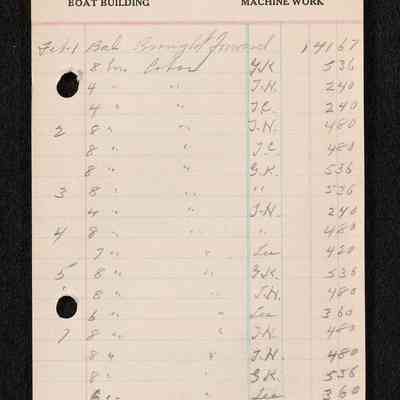 BOAT BUILDING MACHINE WORK
Feb 1 Bal Brought Forward 14167
8 hrs Labor G.K. 536
4 " " J.H. 240
4 " " J.C. 240
2 8 " " J.H. 480
8 " " J.C. 480
8 " " G.K. 536
3 8 " " " 536
4 " " J.H. 240
4 8 " " " 480
7 " " Lea 420
5 8 " " G.K. 536
" 8 " " J.H. 480
6 " " Lea 360
7 8 " " J.H. 480
8 " " J.H. 480
8 " " G.K. 536
6 " " Lea 360